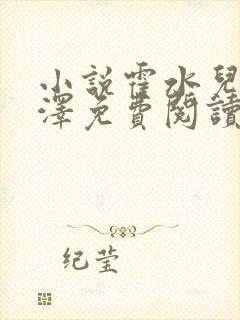 小說霍水兒
澤免費閱讀
纪莹